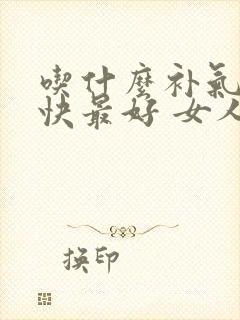 喫什麼补氣
快最好 女人
换印